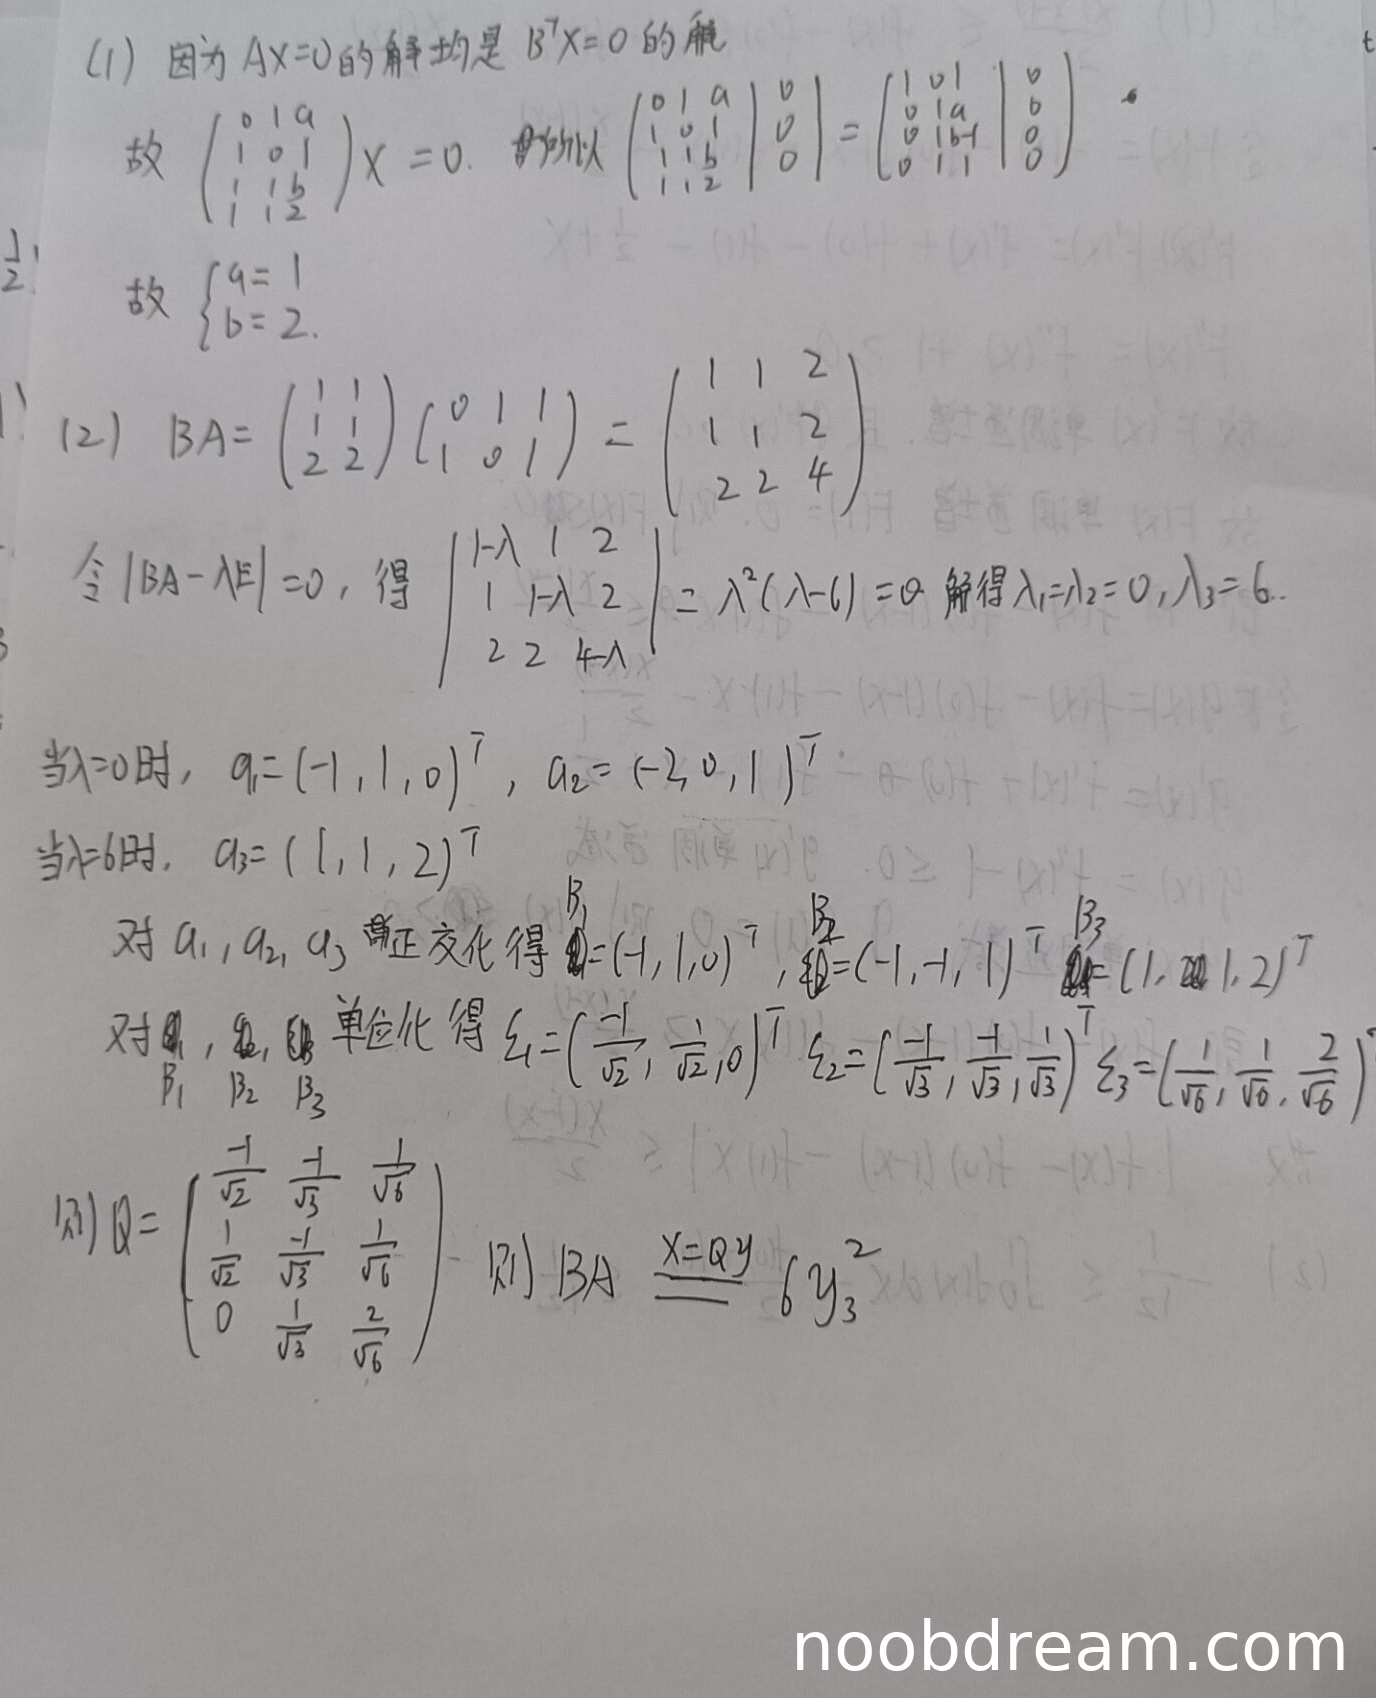 (1) 因为 AX=0的解均是 BᵀX=0 的解
故 (0 1 a; 1 0 1; 1 1 b; 1 1 2) X = 0. 所以 (0 1 a; 1 0 1; 1 1 b; 1 1 2 | 0; 0; 0) = (1 0 1; 0 1 a; 0 1 b-1; 0 1 1 | 0; 0; 0; 0)
故 { a = 1
b = 2.
(2) BA = (1 1; 1 1; 2 2) (0 1 1; 1 0 1) = (1 1 2; 1 1 2; 2 2 4)
令 |BA-λE| = 0, 得 |1-λ 1 2; 1 1-λ 2; 2 2 4-λ| = λ²(λ-6) = 0 解得 λ₁=λ₂=0, λ₃=6.
当λ=0时, a₁=(-1, 1, 0)ᵀ, a₂=(-2, 0, 1)ᵀ
当λ=6时. a₃=(1, 1, 2)ᵀ
对 a₁, a₂, a₃ 正交化得 B₁=(-1, 1, 0)ᵀ, B₂=(-1, -1, 1)ᵀ B₃=(1, 1, 2)ᵀ
对 B₁, B₂, B₃ 单位化得 ξ₁=(-1/√2, 1/√2, 0)ᵀ ξ₂=(-1/√3, -1/√3, 1/√3)ᵀ ξ₃=(1/√6, 1/√6, 2/√6)ᵀ
则 Q = (-1/√2 -1/√3 1/√6; 1/√2 -1/√3 1/√6; 0 1/√3 2/√6) 则 BA X=QY 6y₃²
noobdream.com